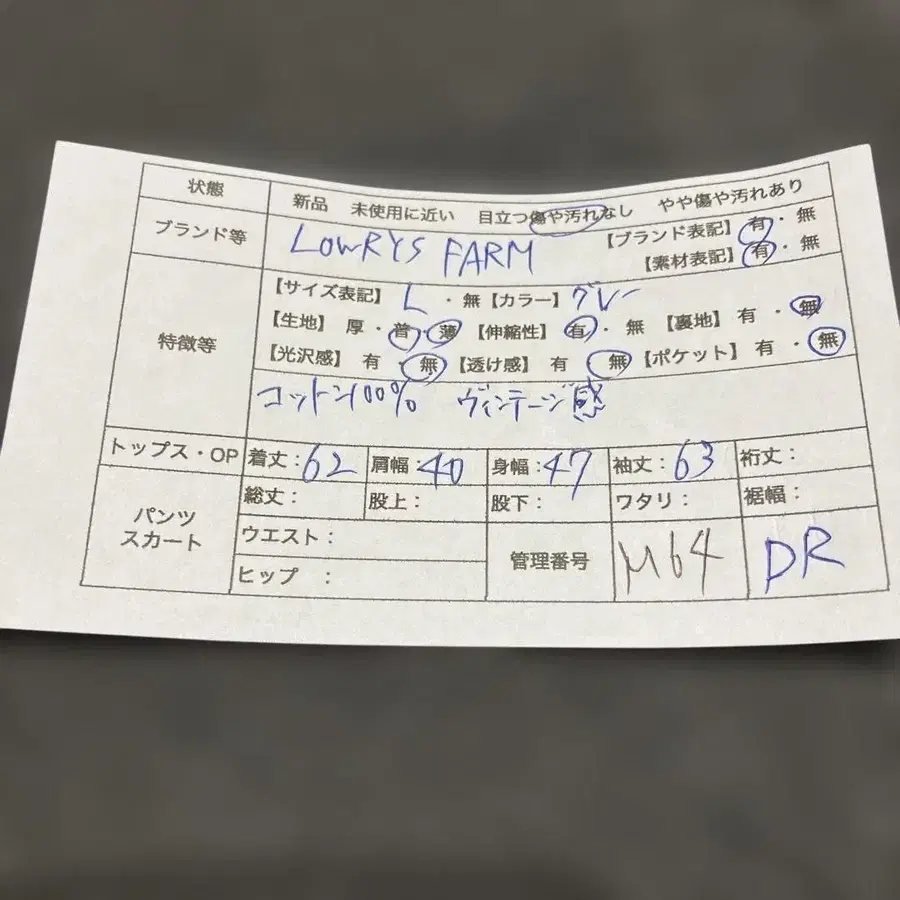 状態 新品 未使用に近い 目立つ傷や汚れなし やや傷や汚れあり
ブランド等 LOWRYS FARM 【ブランド表記】 有・無
【素材表記】 有・無
特徴等 【サイズ表記】 L ・無 【カラー】 グレー
【生地】 厚・普・薄 【伸縮性】 有・無 【裏地】 有・無
【光沢感】 有・無 【透け感】 有 無 【ポケット】 有・無
コットン100% ヴィンテージ感
トップス・OP 着丈：62 肩幅：40 身幅：47 袖丈：63 裄丈：
パンツ スカート 総丈： 股上： 股下： ワタリ： 裾幅：
ウエスト： 管理番号 M64 DR
ヒップ ：